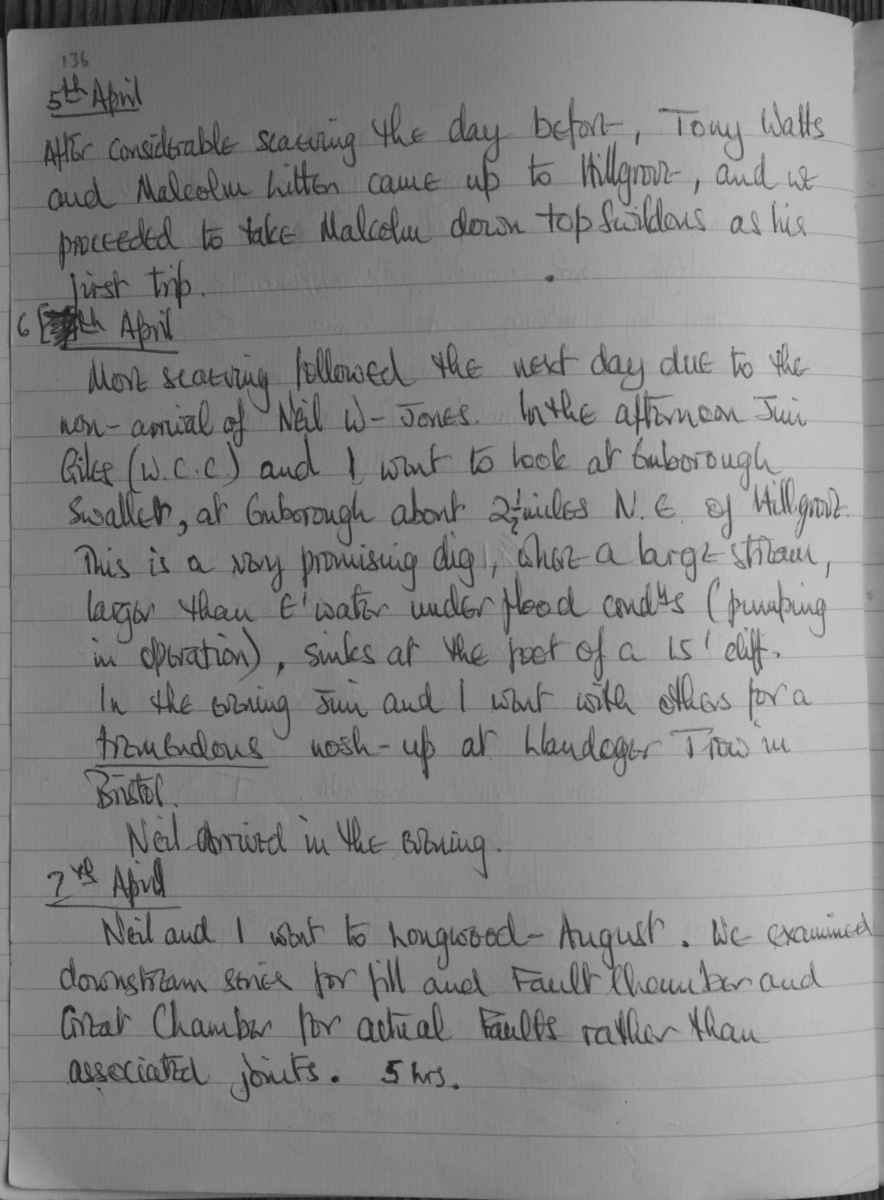 136
5th April
After considerable scatuing the day before, Tony Watts
and Malcolm hitten came up to Hillgrove, and we
proceeded to take Malcolm down top Swildons as his
first trip.
6th April
More scatuing followed the next day due to the
non-arrival of Neil W-Jones. In the afternoon Jim
Giles (W.C.C) and I went to look at Emborough
Swallet, at Emborough about 2½ miles N.E. of Hillgrove.
This is a very promising dig, where a large stream,
larger than E'water under flood condns (pumping
in operation), sinks at the foot of a 15' cliff.
In the evening Jim and I went with others for a
tremendous nosh-up at Llandoger Trow in
Bristol.
Neil arrived in the evening.
7th April
Neil and I went to Longwood-August. We examined
downstream series for fill and Fault Chamber and
Great Chamber for actual Faults rather than
associated joints. 5 hrs.